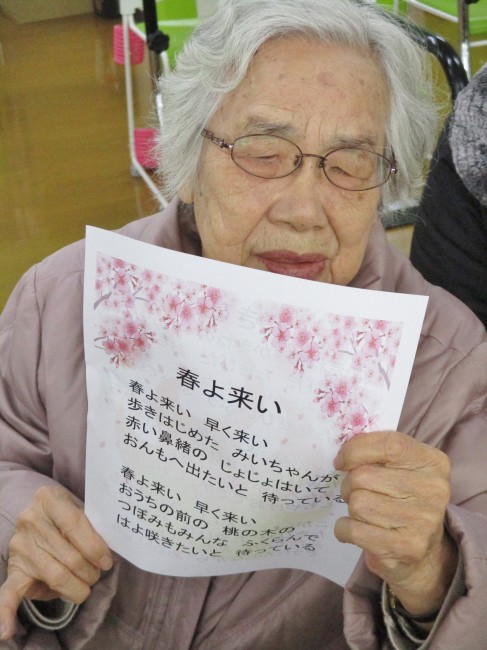 春よ来い
春よ来い 早く来い
歩きはじめた みいちゃんが
赤い鼻緒の じょじょはいて
おんもへ出たいと 待っている
春よ来い 早く来い
おうちの前の 桃の木の
つぼみもみんな ふくらんで
はよ咲きたいと 待っている